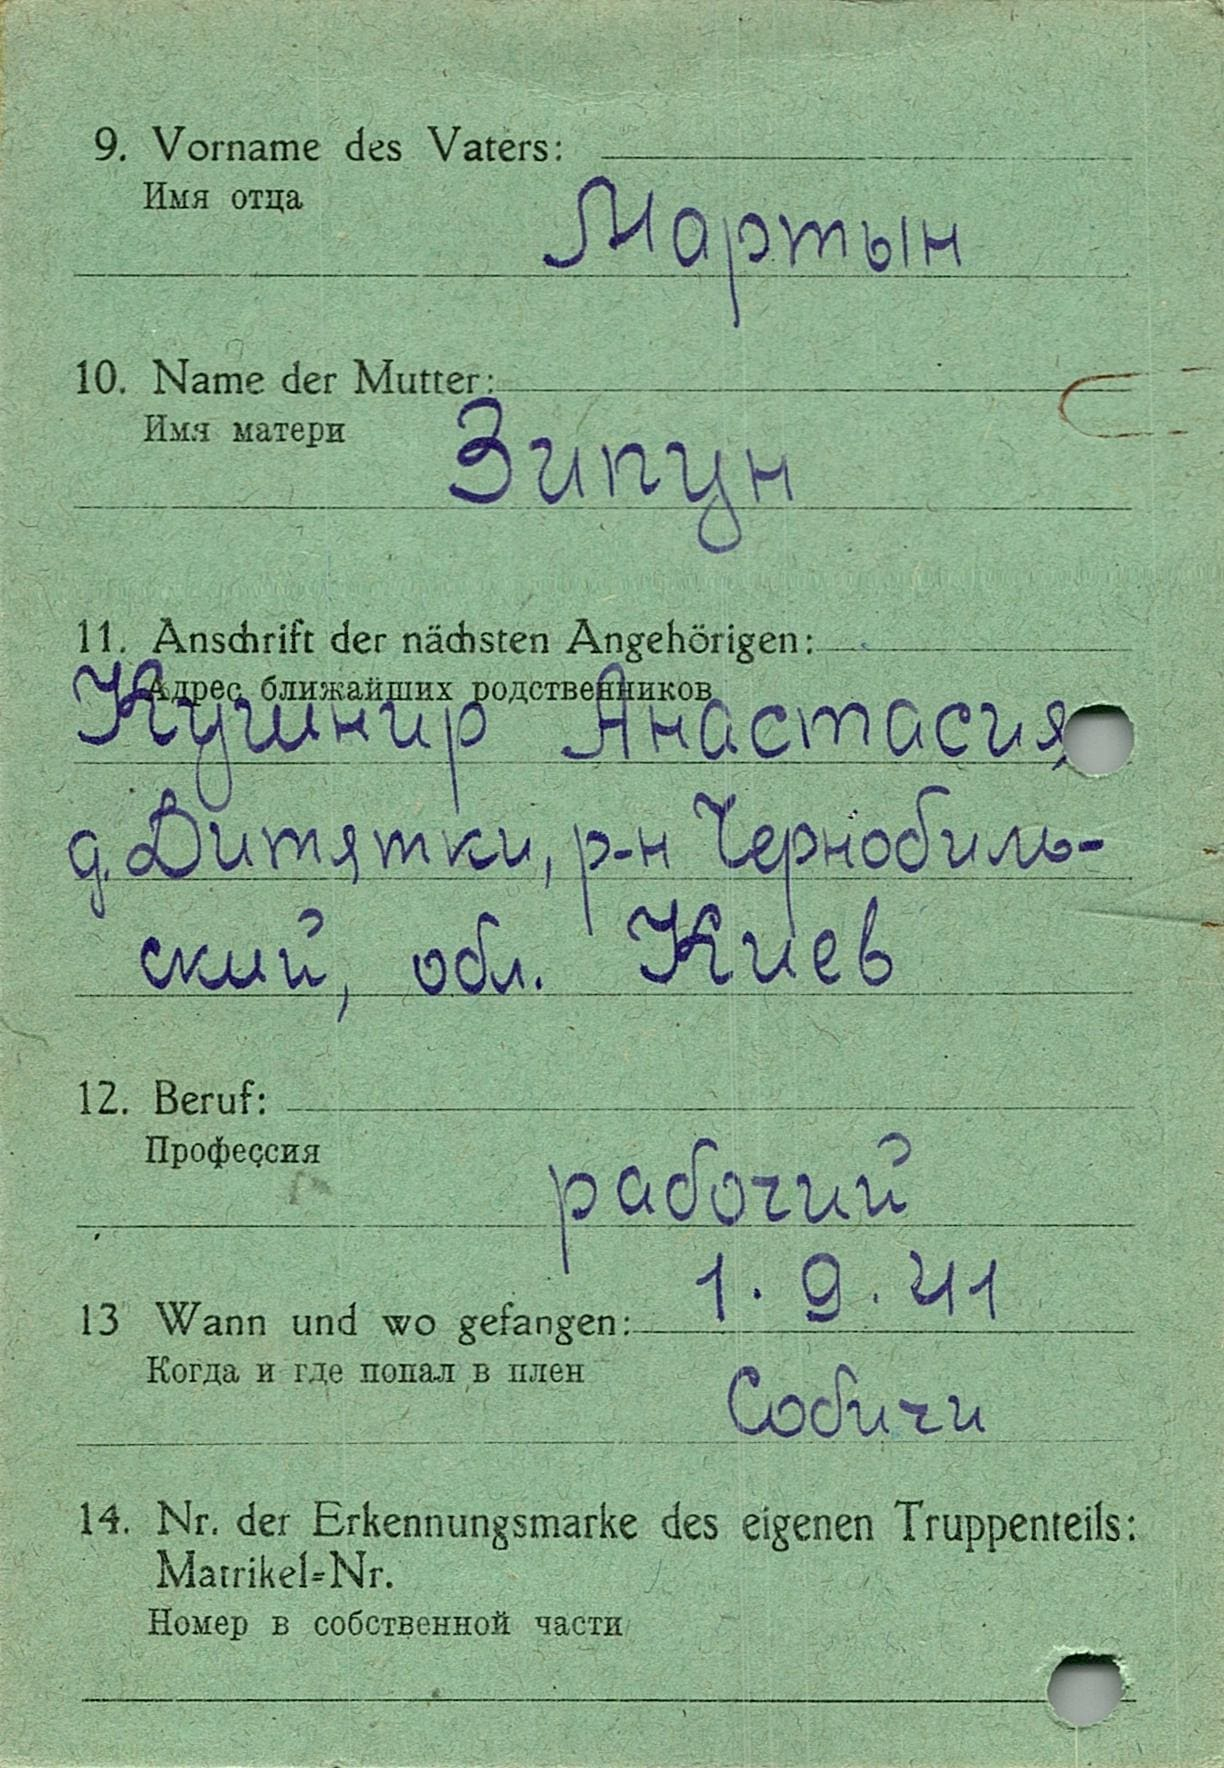 9. Vorname des Vaters:
Имя отца
Мартын
10. Name der Mutter:
Имя матери
Зипун
11. Anschrift der nächsten Angehörigen:
Адрес ближайших родственников
Кушнир Анастасия,
д. Дитятки, р-н Чернобиль-
ский, обл. Киев
12. Beruf:
Профессия
рабочий
1. 9. 41
13 Wann und wo gefangen:
Когда и где попал в плен
Собичи
14. Nr. der Erkennungsmarke des eigenen Truppenteils:
Matrikel-Nr.
Номер в собственной части